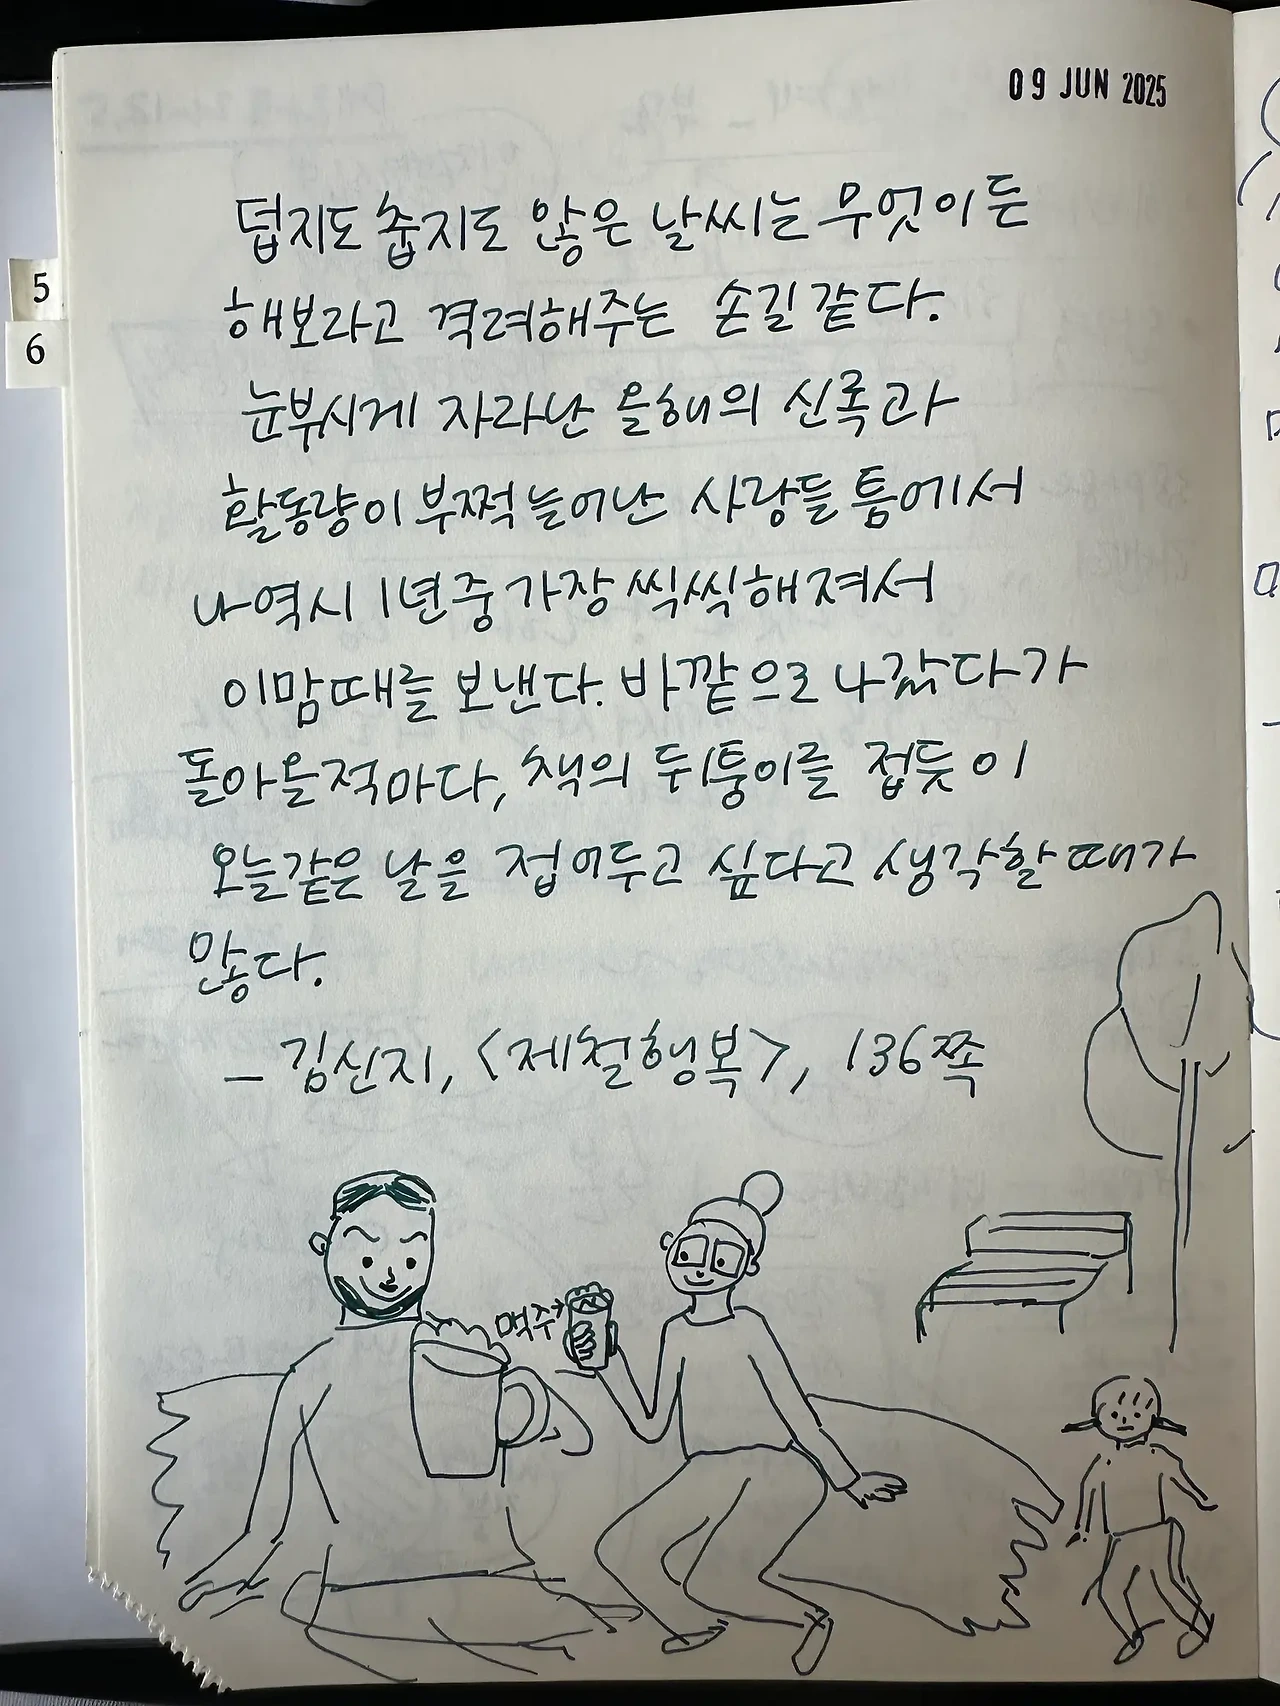 09 JUN 2025
덥지도 춥지도 않은 날씨는 무엇이든
해보라고 격려해주는 손길 같다.
5
6
눈부시게 자라난 올해의 신록과
활동량이 부쩍 늘어난 사람들 틈에서
나 역시 1년 중 가장 씩씩해져서
이맘때를 보낸다. 바깥으로 나갔다가
돌아올 적마다, 책의 귀퉁이를 접듯이
오늘 같은 날을 접어두고 싶다고 생각할 때가
많다.
— 김신지, <제철행복>, 136쪽
맥주→